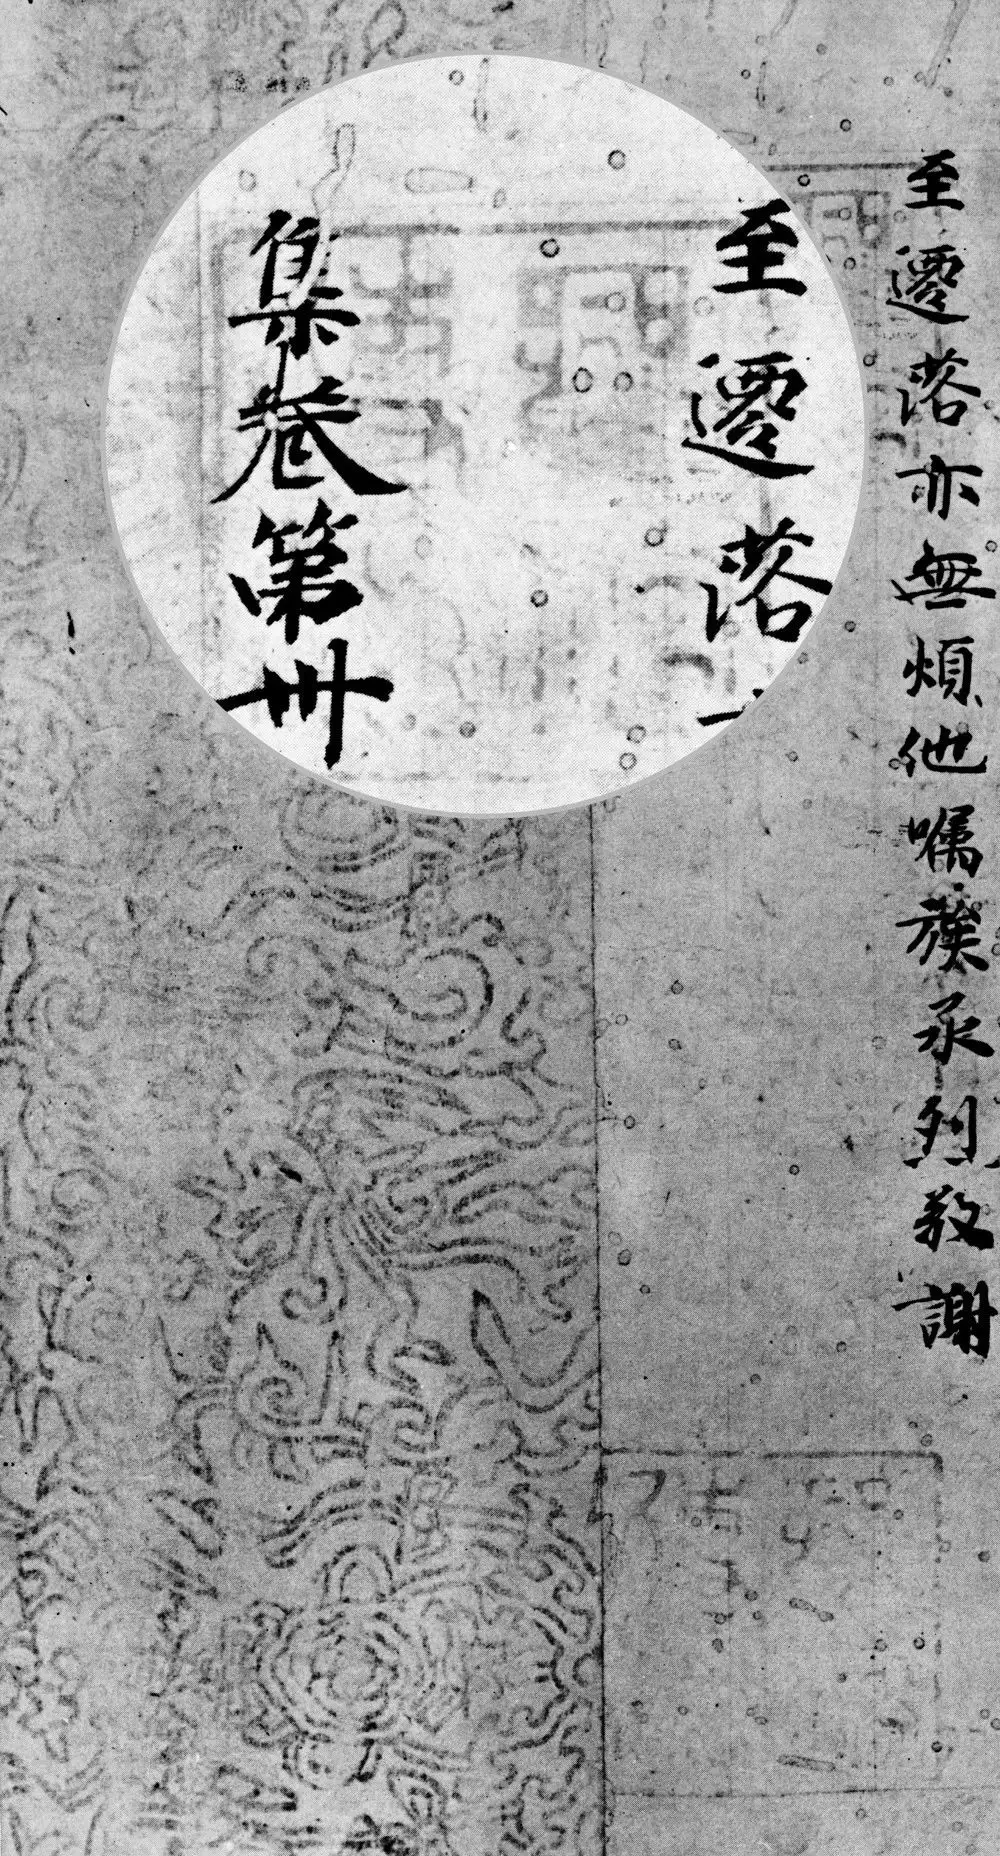 至遷落亦無煩他囑族承列敬謝
至遷落
集卷第卌